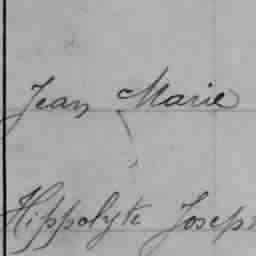 Jean Marie
Hippolyte Joseph